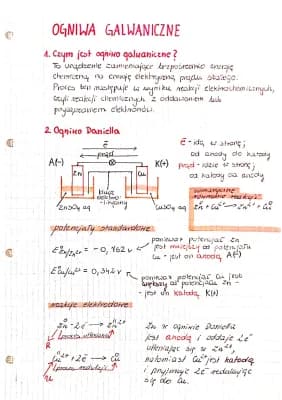 OGNIWA GALWANICZNE
1. Czym jest ogniwo galwaniczne?
To urządzenie zamieniające bezpośrednio energię
chemiczną na energię elektryczną prądu stałego.
Proces ten następuje w wyniku reakcji elektrochemicznych,
czyli reakcji chemicznych z oddawaniem lub
przyjmowaniem elektronów.
2. Ogniwo Daniella
ē
prąd
A(-)
K(+)
Zn
Cu
klucz
elektro-
ZnSO₄ aq
CuSO₄ aq
ē - idą w stronę:
od anody do katody
prąd - idzie w stronę:
od katody do anody
sumaryczne
równanie reakcji:
Zn + Cu²⁺ → Zn²⁺ + Cu
potencjały standardowe
E°Zn/Zn²⁺ = -0,762 V
ponieważ potencjał Zn
jest mniejszy od potencjału
Cu - jest on anodą A(-)
E°Cu/Cu²⁺ = 0,342 V
ponieważ potencjał Cu jest
większy od potencjału Zn -
- jest on katodą K(+)
reakcje elektrodowe
Zn - 2ē → Zn²⁺
(proces utleniania)
Cu²⁺ + 2ē → Cu
(proces redukcji)
Zn w ogniwie Daniella
jest anodą i oddaje 2ē
utleniając się w Zn²⁺,
natomiast Cu²⁺ jest katodą
i przyjmuje 2ē redukując
się do Cu.